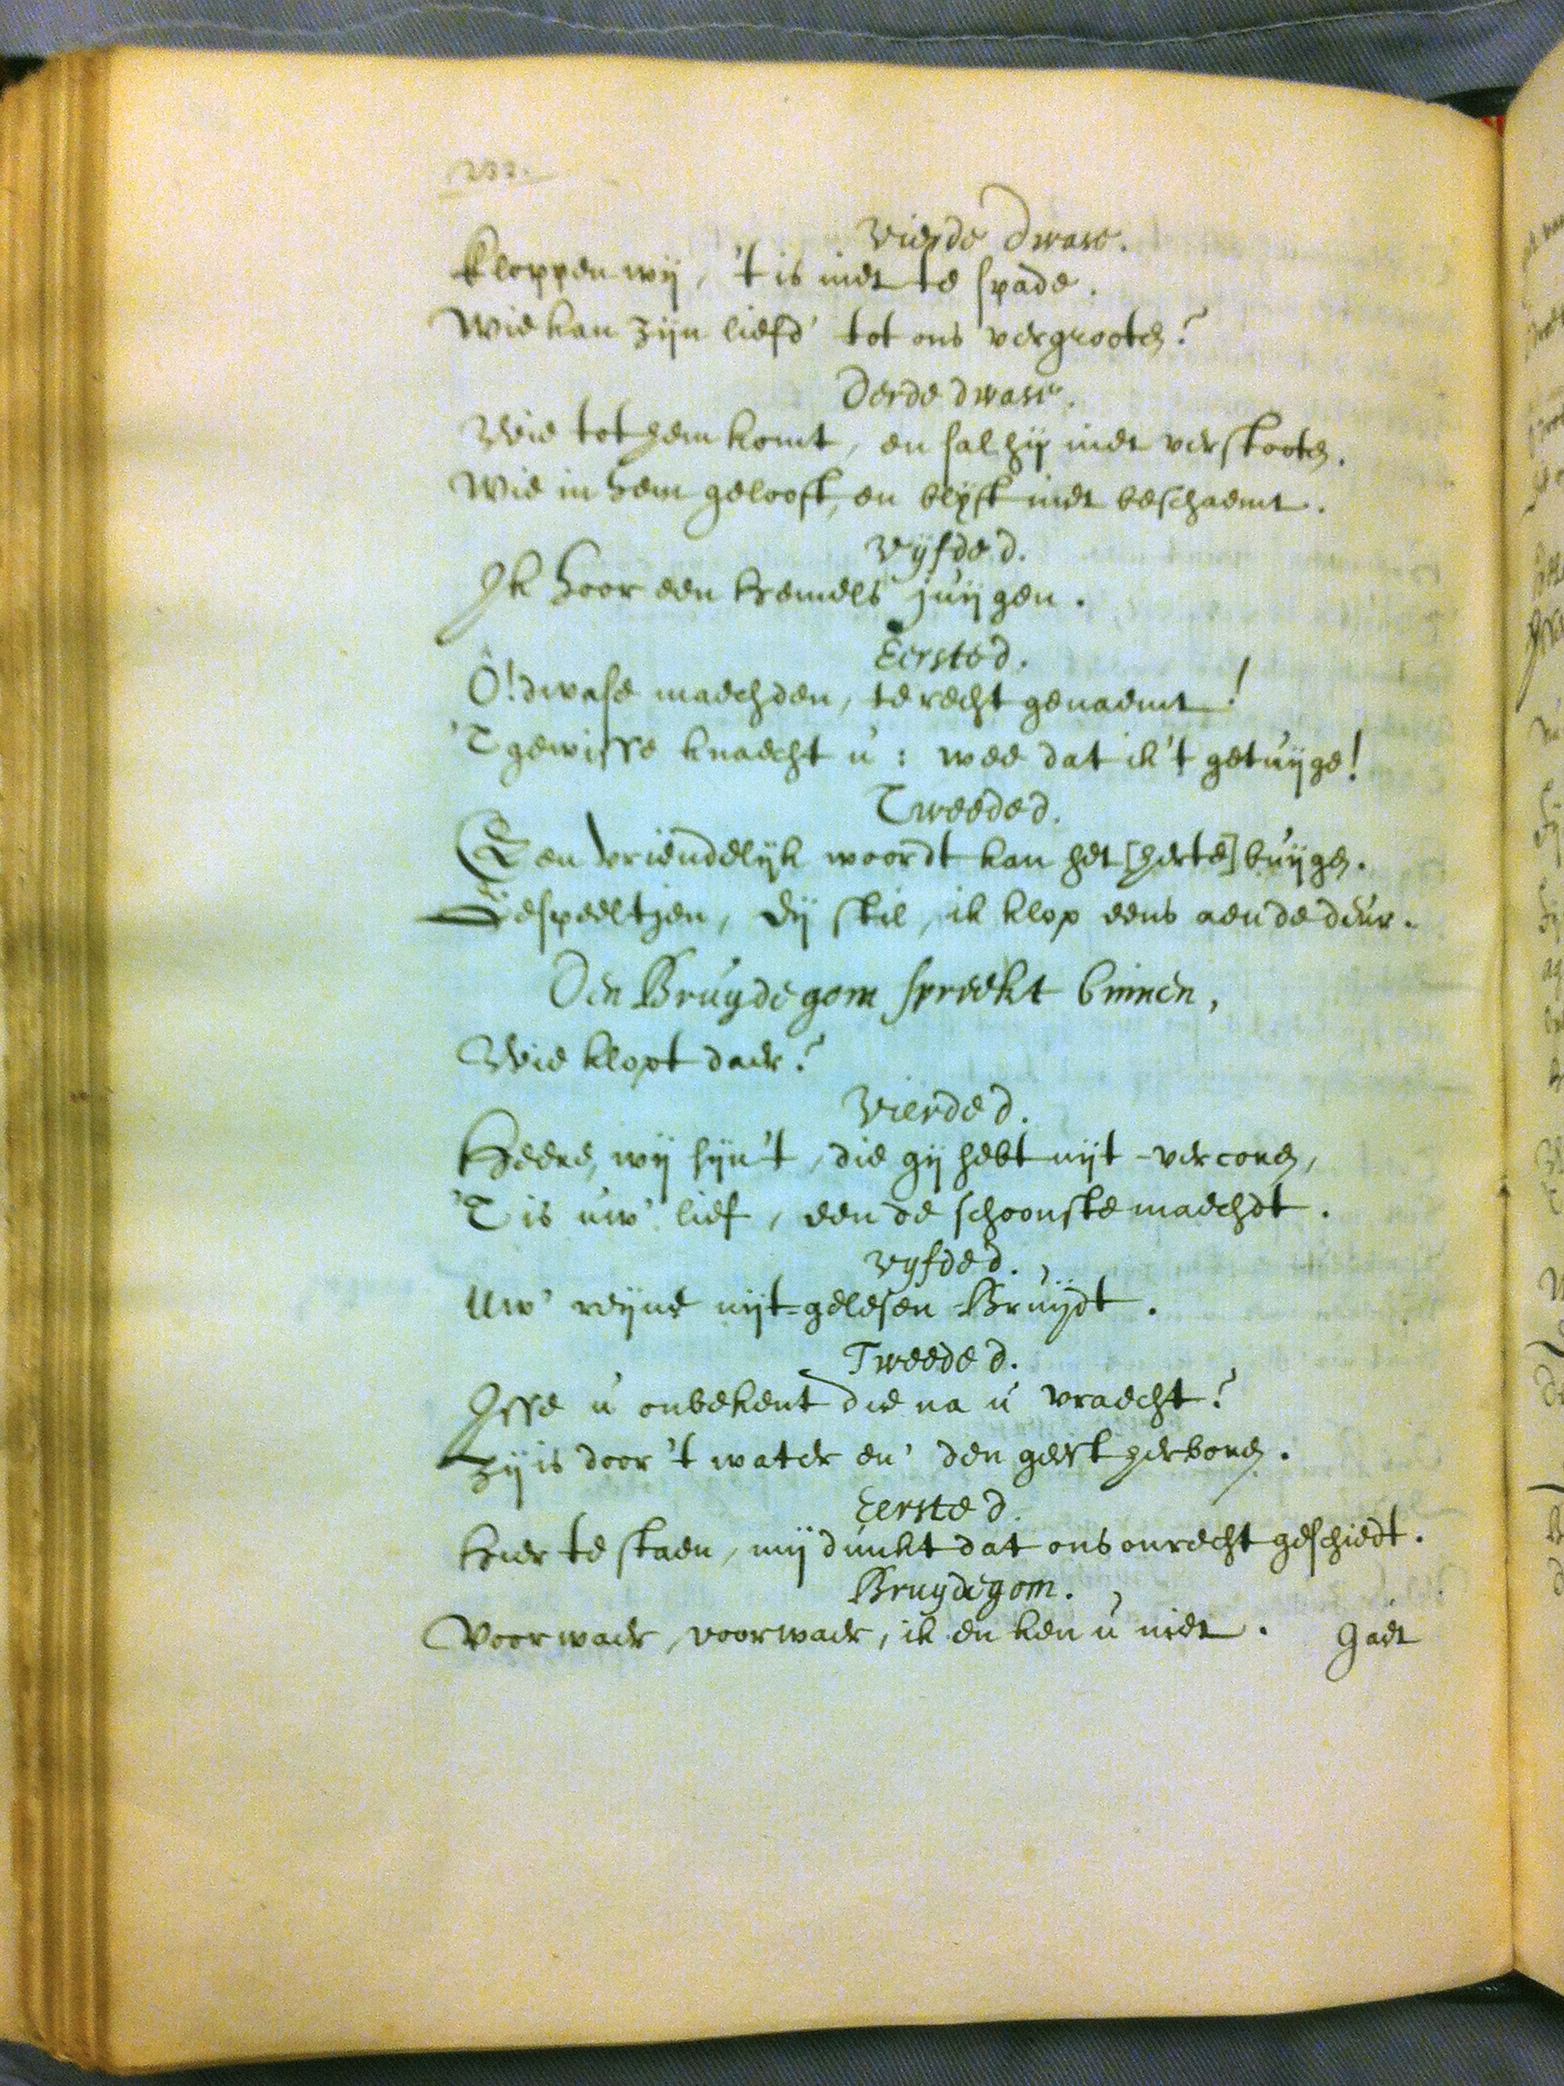 232.
Vierde dwase.
Kloppen wij, 't is niet te spade.
Wie kan zijn liefd' tot ons vergrooten?
Derde dwase.
Wie tot hem komt, en sal hij niet verstooten.
Wie in hem gelooft, en blijft niet beschaemt.
Vijfde d.
Ik hoor een hemels juijgen.
Eerste d.
O! dwase maechden, te recht genaemt!
'T gewisse knaecht u: wee dat ik 't getuijge!
Tweede d.
Een vriendelijk woordt kan het [herte] buijgen.
Gespeeltjen, sij stil, ik klop eens aen de deur.
Den Bruydegom spreekt binnen,
Wie klopt daer?
Vierde d.
Heere, wij sijn't, die gij hebt uijt-vercoren,
'T is uw' lief, een de schoonste maechdt.
Vyfde d.
Uw' reijne uijt-gelesen Bruijdt.
Tweede d.
Isse u onbekent die na u vraecht?
Zij is door 't water en' den geest herboren.
Eerste d.
Hier te staen, mij dunkt dat ons onrecht geschiedt.
Bruydegom.
Voorwaer, voorwaer, ik en ken u niet.
Gaet